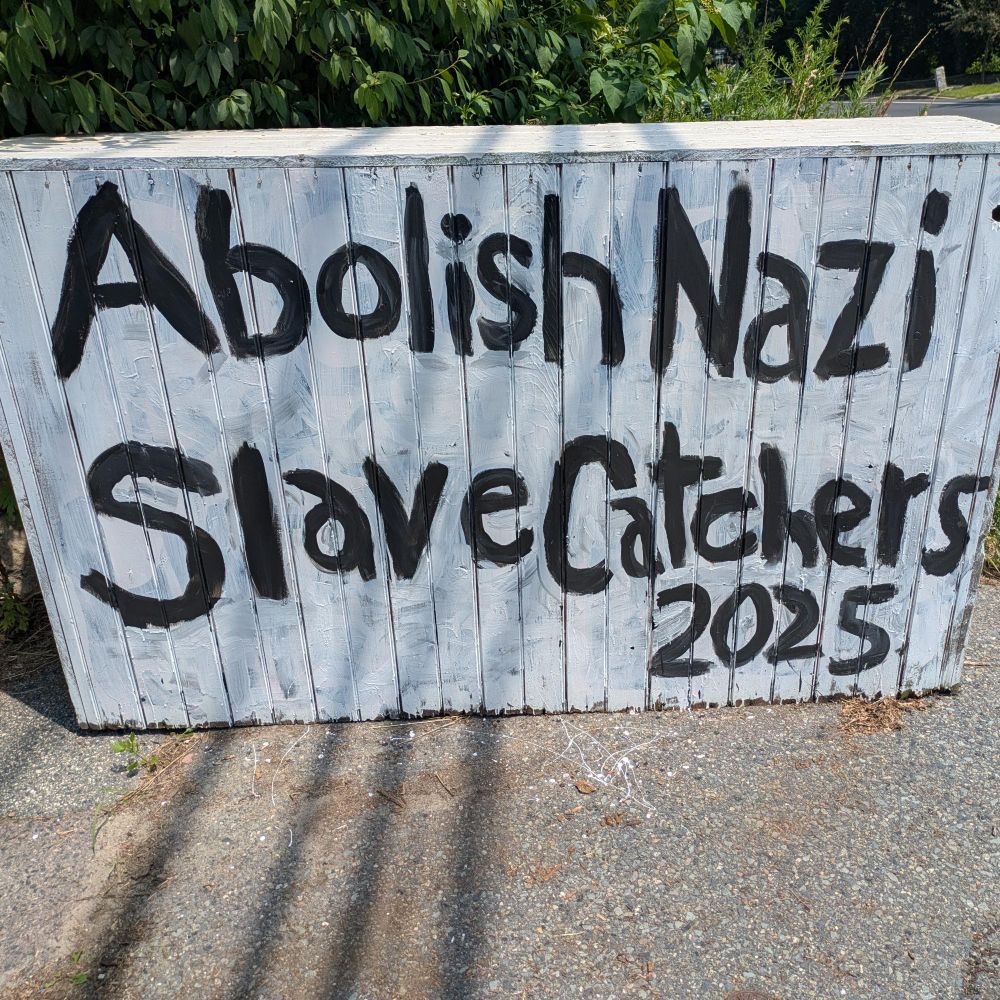 Abolish Nazi
Slave Catchers
2025